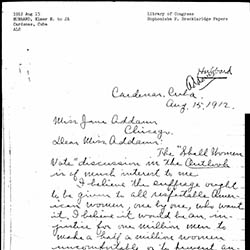 1912 Aug 15
HUBBARD, Elmer E. to JA
Cardenas, Cuba
ALS
Library of Congress
Sophonisba P. Breckinridge Papers
Hubbard
Cardenas, Cuba.
Aug. 15, 1912.
Miss Jane Addams
Chicago.
Dear Miss Addams:
The "Shall Women
Vote" discussion in the Outlook
is of much interest to me.
I believe the suffrage ought
to be given to all respectable Amer-
ican women, one by one, who want
it. I believe it would be an in-
justice for one million men to
make a half a million women
uncomfortable or to prevent an